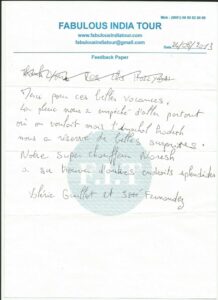 FABULOUS INDIA TOUR
www.fabulousindiatour.com
fabulousindiatour@gmail.com
Feedback Paper
Merci pour ces belles vacances.
La pluie nous a empêché d'aller partout
où on voulait mais l'
nous a réservé de belles surprises.
Notre Super chauffeur Naresh
a su trouver d'autres endroits splendides
Guillot et Fernandez
F.I.T